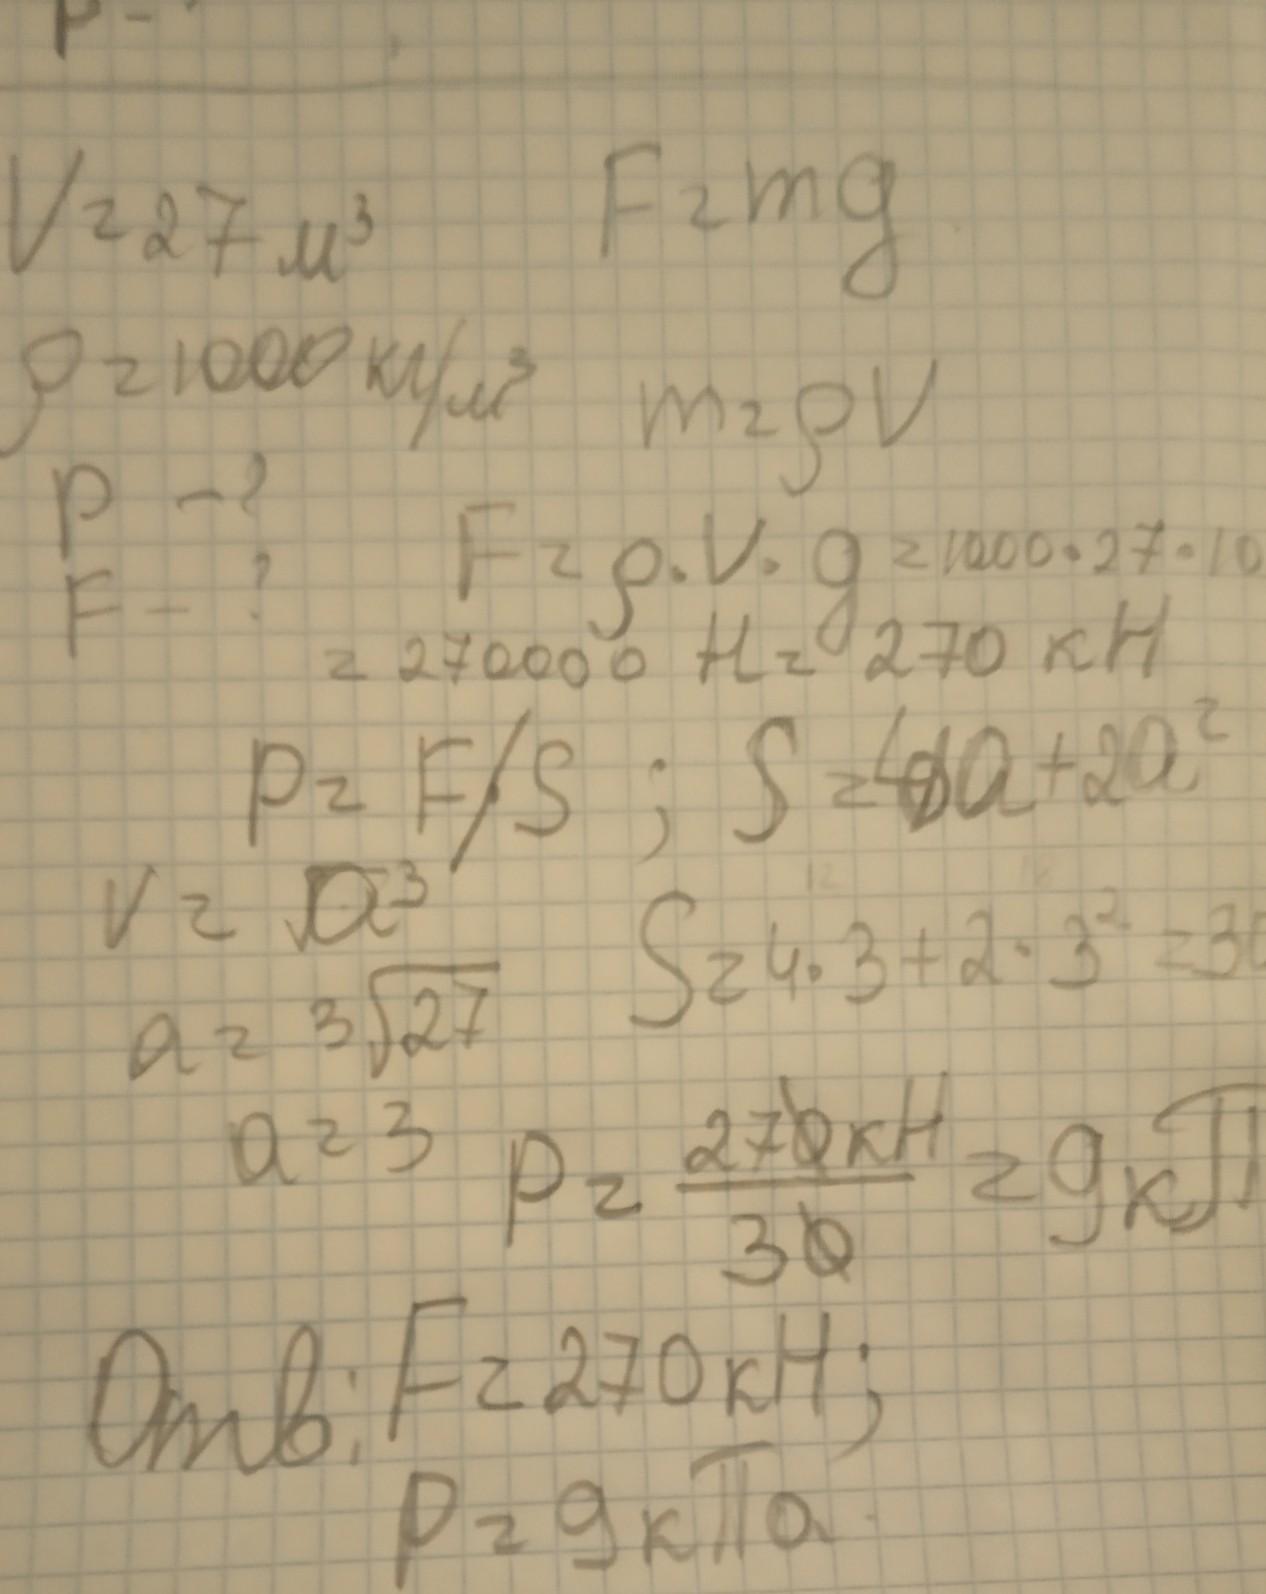 p - ?
V = 27 м³ F = mg
ρ = 1000 кг/м³ m = ρV
p - ?
F - ? F = ρ · V · g = 1000 · 27 · 10
= 270000 Н = 270 кН
p = F/S ; S = 4a + 2a²
V = a³ S = 4 · 3 + 2 · 3² = 30
a = ³√27
a = 3 p = 270 кН / 30 = 9 кП
Отв: F = 270 кН;
p = 9 кПа